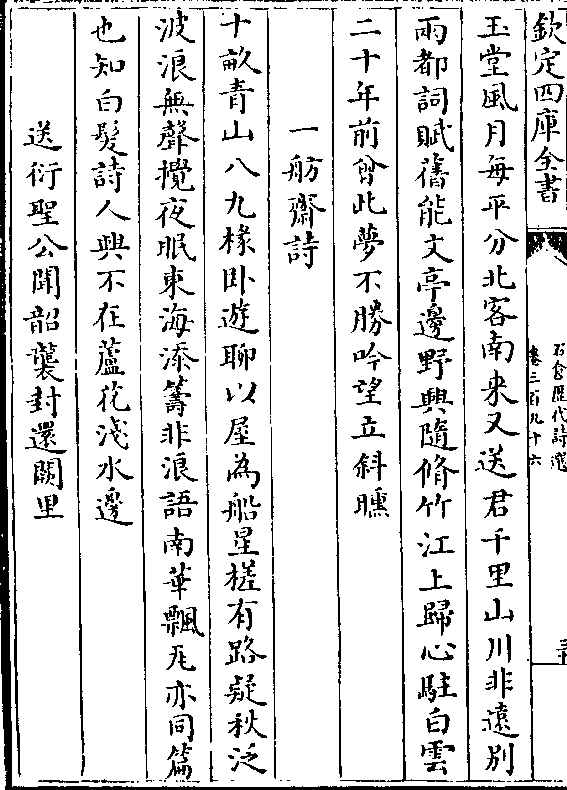 欽定四庫全書
石倉歴代詩選
卷三百九十六
玉堂風月每平分北客南來又送君千里山川非遠别
兩都詞賦舊能文亭邊野興隨脩竹江上歸心駐白雲
二十年前曾此夢不勝吟望立斜曛
一舫齋詩
十畝青山八九椽卧遊聊以屋為船星槎有路疑秋泛
波浪無聲攪夜眠東海添籌非浪語南華飄瓦亦同篇
也知白髮詩人興不在蘆花淺水邊
送衍聖公聞韶襲封還闕里